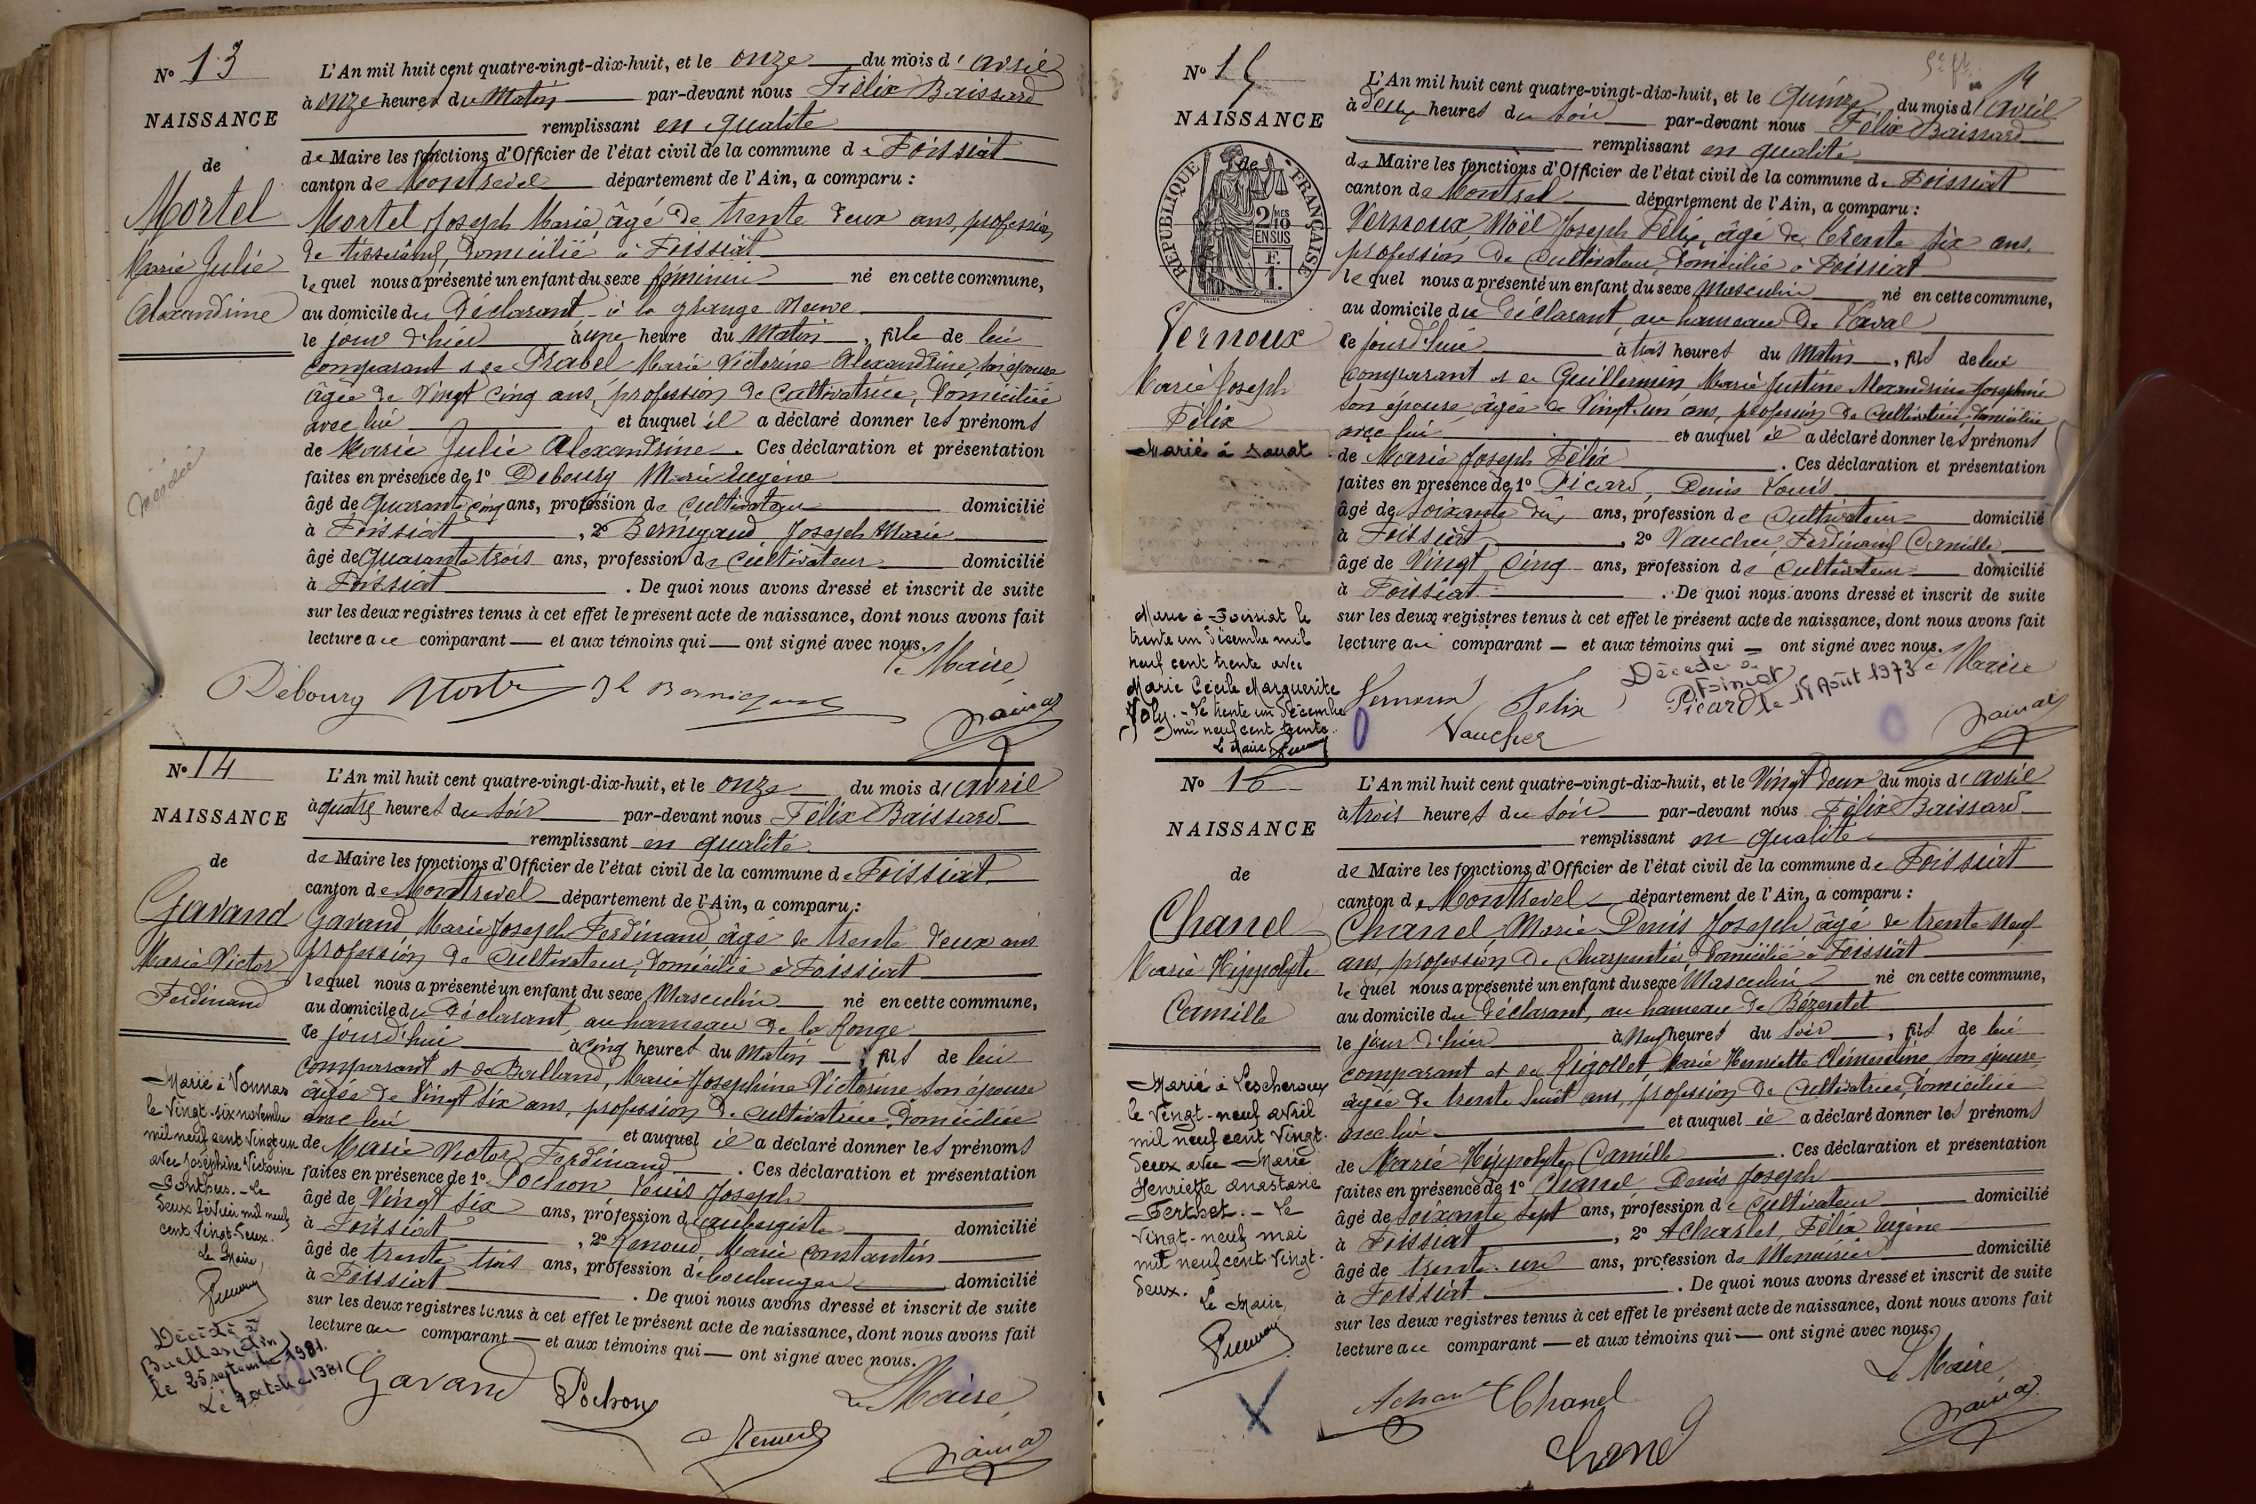 N° 13
NAISSANCE
de
Mortel
Marie Julie
Alexandrine
L'An mil huit cent quatre-vingt-dix-huit, et le onze du mois d'avril
à onze heures du Matin par-devant nous Félix Baissard
remplissant en qualité
de Maire les fonctions d'Officier de l'état civil de la commune de Foissiat
canton de Montrevel département de l'Ain, a comparu :
Mortel Joseph Marie, âgé de trente deux ans, profession
de tisserand, domicilié à Foissiat
lequel nous a présenté un enfant du sexe féminin né en cette commune,
au domicile du Déclarant, à la grange Neuve
le jour d'hier à une heure du Matin, fille de lui
comparant et de Prabel Marie Victorine Alexandrine, son épouse
âgée de Vingt cinq ans, profession de cultivatrice, domiciliée
avec lui et auquel il a déclaré donner les prénoms
de Marie Julie Alexandrine. Ces déclaration et présentation
faites en présence de 1° Debourg Marie Eugène
âgé de Quarante cinq ans, profession de cultivateur domicilié
à Foissiat, 2° Bernigaud Joseph Marie
âgé de Quarante trois ans, profession de cultivateur domicilié
à Foissiat. De quoi nous avons dressé et inscrit de suite
sur les deux registres tenus à cet effet le présent acte de naissance, dont nous avons fait
lecture au comparant et aux témoins qui ont signé avec nous.
Le Maire,
Debourg
N° 14
NAISSANCE
de
Gavand
Marie Victor
Ferdinand
Marié à Vonnas
le Vingt-six novembre
mil neuf cent vingt un
avec Joséphine Victorine
Ponthus. - Le
deux février mil neuf
cent Vingt-deux.
Le Maire,
Décédé à
Buellas (Ain)
le 25 septembre 1981.
L'An mil huit cent quatre-vingt-dix-huit, et le onze du mois d'avril
à quatre heures du soir par-devant nous Félix Baissard
remplissant en qualité
de Maire les fonctions d'Officier de l'état civil de la commune de Foissiat
canton de Montrevel département de l'Ain, a comparu :
Gavand Marie Joseph Ferdinand, âgé de trente deux ans
profession de cultivateur, domicilié à Foissiat
lequel nous a présenté un enfant du sexe Masculin né en cette commune,
au domicile du Déclarant, au hameau de la Ronge
ce jourd'hui à cinq heures du Matin, fils de lui
comparant et de Balland, Marie Joséphine Victorine son épouse
âgée de Vingt six ans, profession de cultivatrice, Domiciliée
avec lui et auquel il a déclaré donner les prénoms
de Marie Victor Ferdinand. Ces déclaration et présentation
faites en présence de 1° Pochon Louis Joseph
âgé de Vingt six ans, profession d'aubergiste domicilié
à Foissiat, 2° Renoud, Marie Constantin
âgé de trente trois ans, profession de boulanger domicilié
à Foissiat. De quoi nous avons dressé et inscrit de suite
sur les deux registres tenus à cet effet le présent acte de naissance, dont nous avons fait
lecture au comparant et aux témoins qui ont signé avec nous.
Gavand Pochon
Le Maire
N° 15
NAISSANCE
de
RÉPUBLIQUE FRANÇAISE
2/10 MES
EN SUS
F.
1.
Vernoux
Marie Joseph
Félix
Marié à
Marié à Foissiat le
trente un décembre mil
neuf cent trente avec
Marie Cécile Marguerite
Joly. - Le trente un décembre
mil neuf cent trente.
Le Maire,
L'An mil huit cent quatre-vingt-dix-huit, et le Quinze du mois d'avril
à deux heures du soir par-devant nous Félix Baissard
remplissant en qualité
de Maire les fonctions d'Officier de l'état civil de la commune de Foissiat
canton de Montrevel département de l'Ain, a comparu :
Vernoux Noël Joseph Félix, âgé de trente six ans,
profession de cultivateur, domicilié à Foissiat
lequel nous a présenté un enfant du sexe Masculin né en cette commune,
au domicile du Déclarant, au hameau de
ce jourd'hui à trois heures du Matin, fils de lui
comparant et de Guillermin Marie Justine Alexandrine Joséphine
son épouse, âgée de Vingt-un ans, profession de cultivatrice domiciliée
avec lui et auquel il a déclaré donner les prénoms
de Marie Joseph Félix. Ces déclaration et présentation
faites en présence de 1° Picard, Denis Louis
âgé de soixante dix ans, profession de Cultivateur domicilié
à Foissiat, 2° Vaucher, Ferdinand Camille
âgé de Vingt Cinq ans, profession de Cultivateur domicilié
à Foissiat. De quoi nous avons dressé et inscrit de suite
sur les deux registres tenus à cet effet le présent acte de naissance, dont nous avons fait
lecture au comparant et aux témoins qui ont signé avec nous.
Le Maire
Décédé à
Foissiat
le 18 Août 1973
Vernoux Félix Picard
Vaucher
N° 16
NAISSANCE
de
Chanel
Marie Hippolyte
Camille
Marié à Lescheroux
le Vingt-neuf avril
mil neuf cent Vingt-
deux avec Marie
Henriette Anastasie
Ferthet. - Le
Vingt-neuf mai
mil neuf cent Vingt-
deux.
Le Maire,
L'An mil huit cent quatre-vingt-dix-huit, et le Vingt deux du mois d'avril
à trois heures du Soir par-devant nous Félix Baissard
remplissant en qualité
de Maire les fonctions d'Officier de l'état civil de la commune de Foissiat
canton de Montrevel département de l'Ain, a comparu :
Chanel Marie Denis Joseph âgé de trente Neuf
ans, profession de Charpentier, domicilié à Foissiat
lequel nous a présenté un enfant du sexe Masculin né en cette commune,
au domicile du Déclarant, au hameau de Bézentet
le jour d'hier à Neuf heures du soir, fils de lui
comparant et de Rigollet Marie Henriette Clémentine son épouse
âgée de trente huit ans, profession de cultivatrice, domiciliée
avec lui et auquel il a déclaré donner les prénoms
de Marie Hippolyte Camille. Ces déclaration et présentation
faites en présence de 1° Chanel Denis Joseph
âgé de soixante sept ans, profession de Cultivateur domicilié
à Foissiat, 2° Acharles, Félix Eugène
âgé de trente un ans, profession de Menuisier domicilié
à Foissiat. De quoi nous avons dressé et inscrit de suite
sur les deux registres tenus à cet effet le présent acte de naissance, dont nous avons fait
lecture au comparant et aux témoins qui ont signé avec nous.
Le Maire,
Chanel
Chanel